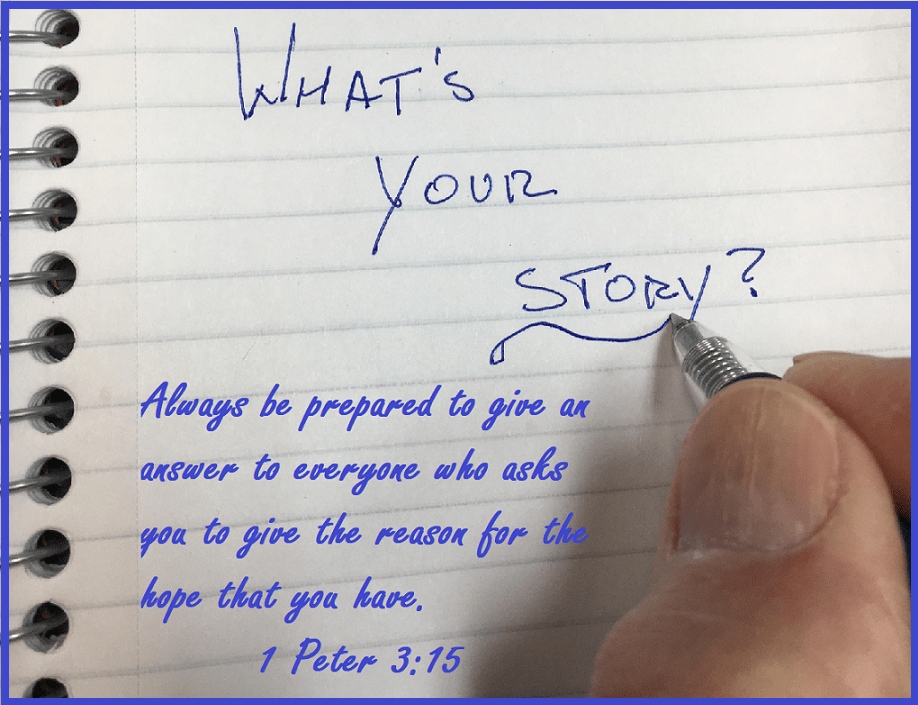 WHAT'S
YOUR
STORY?
Always be prepared to give an
answer to everyone who asks
you to give the reason for the
hope that you have.
1 Peter 3:15